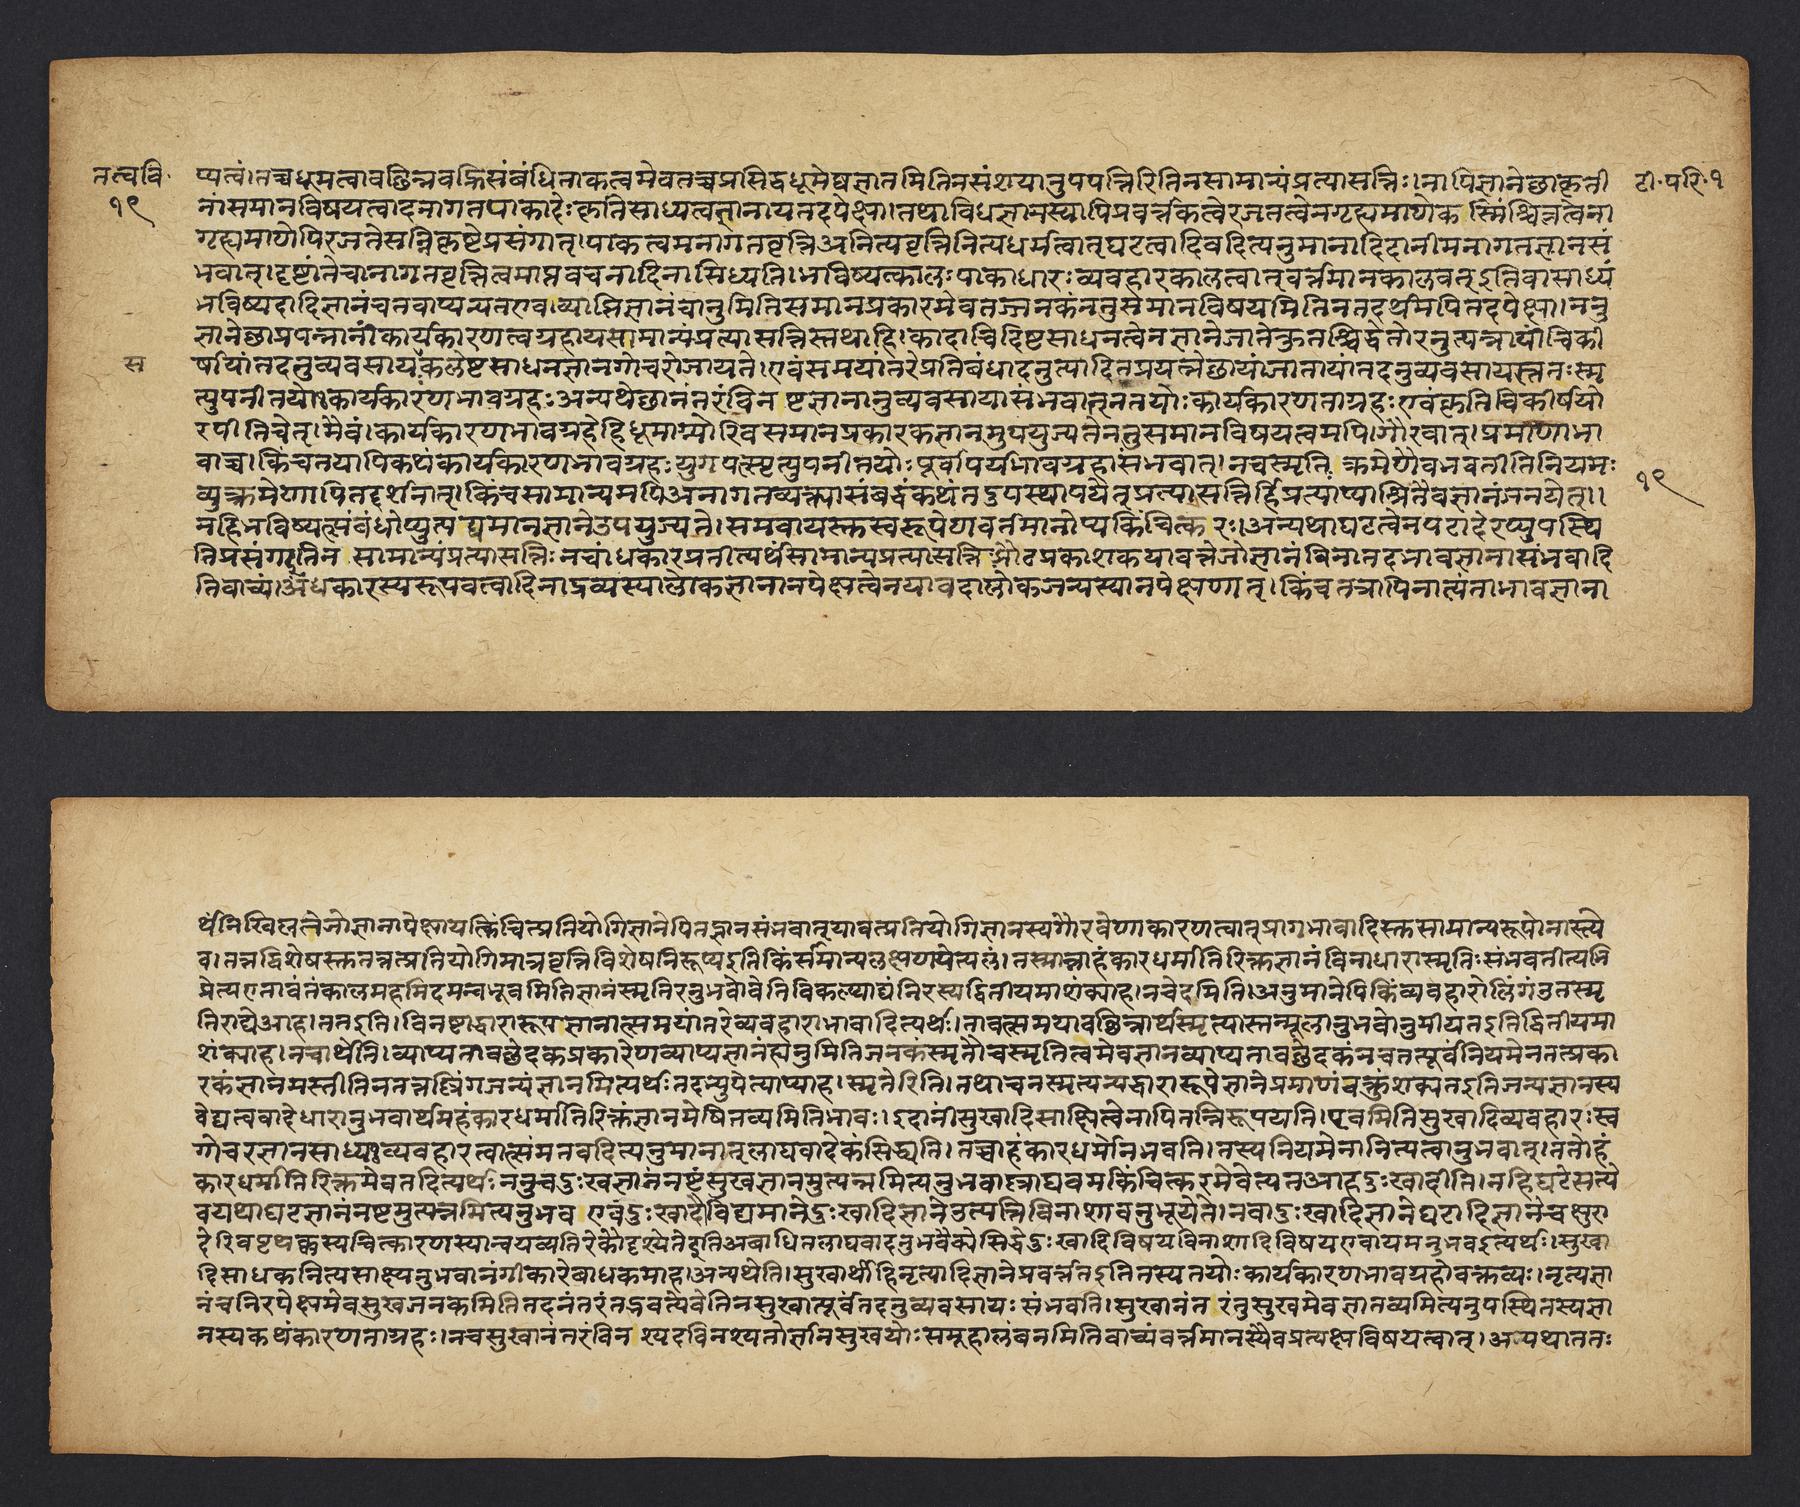 तत्ववि·
१९
टी·परि·१
प्यत्वं।तच्चधूमत्वावछिन्नवह्निसंबंधिताकत्वमेवतच्चप्रसिद्धधूमेद्यज्ञातमितिनसंशयानुपपत्तिरितिनसामान्यंप्रत्यासत्तिः।नापिज्ञानेछाकृती
नांसमानविषयत्वादनागतपाकादेःकृतिसाध्यत्वज्ञानायतदपेक्षा।तथाविधज्ञानस्यापिप्रवर्त्तकत्वेरजतत्वेनगृह्यमाणेकस्मिंश्चिन्नत्वेना
गृह्यमाणेपिरजतेसन्निकृष्टेप्रसंगात्।पाकत्वमनागतवृत्तिअनित्यवृत्तिनित्यधर्मत्वात्घटत्वादिवदित्यनुमानादिदानीमनागतज्ञानसं
भवात्।दृष्टांतेचानागतवृत्तित्वमाप्तवचनादिनासिध्यति।भविष्यत्कालःपाकाधारःव्यवहारकालत्वात्वर्त्तमानकालवत्इतिवासाध्यं
भविष्यदादिज्ञानंचतवाप्यन्यतएव।व्याप्तिज्ञानंचानुमितिसमानप्रकारमेवतज्जनकंनतुसमानविषयमितिनतदर्थमपितदपेक्षा।ननु
ज्ञानेछाप्रयत्नानांकार्यकारणत्वग्रहायसामान्यंप्रत्यासत्तिस्तथाहि।कादाचिदिष्टसाधनत्वेनज्ञानेजातेकुतश्चिद्धेतोरनुत्पन्नायांचिकी
स
र्षायांतदनुव्यवसायकलेष्टसाधनज्ञानगोचरोजायते।एवंसमयांतरेप्रतिबंधादनुत्पादितप्रयत्नेछायांजातायांतदनुव्यवसायस्ततःस्मृ
त्युपनीतयोःकार्यकारणभावग्रहःअन्यथेछानंतरंविनष्टज्ञानानुव्यवसायासंभवात्नतयोःकार्यकारणताग्रहःएवंकृतिचिकीर्षयो
रपीतिचेत्।मैवं।कार्यकारणभावग्रहेहिधूमाग्न्योरिवसमानप्रकारकज्ञानमुपयुज्यतेनतुसमानविषयत्वमपि।गौरवात्।प्रमाणाभा
वाच्च।किंचतयापिकथंकार्यकारणभावग्रहःयुगपत्स्मृत्युपनीतयोःपूर्वापर्यभावग्रहासंभवात्।नचस्मृतिक्रमेणैवभवतीतिनियमः
१९
व्युत्क्रमेणापितदृर्शनात्।किंचसामान्यमपिअनागतव्यक्त्यासंबद्धंकथंतदुपस्थापयेत्प्रत्यासत्तिर्हिप्रत्याप्याश्रितैवज्ञानंजनयेत्।।
नहिभविष्यत्संबंधोप्युत्पद्यमानज्ञानेउपयुज्यते।समवायस्तुस्वरूपेणवर्तमानोप्यकिंचित्करः।अन्यथाघटत्वेनपटादेरप्युपस्थि
तिप्रसंगात्तिनसामान्यंप्रत्यासत्तिःनचांधकारप्रतीत्यर्थंसामान्यप्रत्यासत्तिप्रौढप्रकाशकयावत्तेजोज्ञानंविनातदभावज्ञानासंभवादि
तिवाच्यं।अंधकारस्यरूपवत्वादिनाद्रव्यस्यालोकज्ञानानपेक्षत्वेनयावदालोकजन्यस्यानपेक्षणात्।किंचतत्रापिनात्यंताभावज्ञाना
र्थंनिखिलतेजोज्ञानापेक्षायत्किंचित्प्रतियोगिज्ञानेपितद्भानसंभवात्यावत्प्रतियोगिज्ञानस्यगौरवेणाकारणत्वात्प्रागभावादिस्तुसामान्यरूपोनास्त्ये
व।तत्तद्विशेषस्तुतत्तत्प्रतियोगिमात्रवृत्तिविशेषनिरूप्यइतिकिंसामान्यलक्षणयेत्यलं।तस्मान्नाहंकारधर्मातिरिक्तज्ञानंविनाधारास्मृतिःसंभवतीत्यभि
प्रेत्यएतावंतंकालमहमिदमन्वभूवमितिज्ञानंस्मृतिरनुभवोवेतिविकल्प्याद्यंनिरस्यद्वितीयमाशंक्याह।नचेदमिति।अनुमानेपिकिंव्यवहारोलिंगंउतस्मृ
तिराद्येआह।ततइति।विनष्टाद्वारारूपज्ञानात्समयांतरेव्यवहाराभावादित्यर्थः।तावत्समयावछिन्नार्थस्मृत्यास्तन्मूलानुभवोनुमीयतइतिद्वितीयमा
शंक्याह।नचार्थेति।व्याप्यतावछेदकप्रकारेणव्याप्यज्ञानंह्यनुमितिजनकंस्मृतौचस्मृतित्वमेवज्ञानव्याप्यतावछेदकंनचतत्पूर्वंनियमेनतत्प्रका
रकंज्ञानमस्तीतिनतत्तल्लिंगजन्यंज्ञानमित्यर्थःतदभ्युपेत्याप्याह।स्मृतेरिति।तथाचनस्मृत्यन्यद्वारारूपेज्ञानेप्रमाणंवक्तुंशक्यतइतिजन्यज्ञानस्य
वेद्यत्ववादेधारानुभवार्थमहंकारधर्मातिरिक्तंज्ञानमेषितव्यमितिभावः।इदानींसुखादिसाक्षित्वेनापितन्निरूपयति।एवमितिसुखादिव्यवहारःस्व
गोचरज्ञानसाध्यःव्यवहारत्वात्संमतवदित्यनुमानात्लाघवादेकंसिद्ध्यति।तच्चाहंकारधर्मोनभवति।तस्यनियमेनानित्यत्वानुभवात्।ततोहं
कारधर्मातिरिक्तमेवतदित्यर्थःननुचदुःखज्ञानंनष्टंसुखज्ञानमुत्पन्नमित्यनुभवाल्लाघवमकिंचित्करमेवेत्यतआहदुःखादीति।नहिघटेसत्ये
वयथाघटज्ञानंनष्टमुत्पन्नमित्यनुभवएवंदुःखादौविद्यमानेदुःखादिज्ञानेउत्पत्तिविनाशावनुभूयेते।नवादुःखादिज्ञानेघटादिज्ञानेचक्षुरा
देरिवपृथक्कस्यचित्कारणस्यान्वयव्यतिरेकौदृश्येतेइतिअबाधितलाघवादनुभवैक्येसिद्धेदुःखादिविषयविनाशादिविषयएवायमनुभवइत्यर्थः।सुखा
दिसाधकनित्यसाक्ष्यनुभवानंगीकारेबाधकमाह।अन्यथेति।सुखार्थीहिनृत्यादिज्ञानेप्रवर्त्ततइतितस्यतयोःकार्यकारणभावग्रहोवक्तव्यः।नृत्यज्ञा
नंचनिरपेक्षमेवसुखजनकमितितदनंतरंतद्भवत्येवेतिनसुखात्पूर्वंतदनुव्यवसायःसंभवति।सुखानंतरंतुसुखमेवज्ञातव्यमित्यनुपस्थितस्यज्ञा
नस्यकथंकारणताग्रहः।नचसुखानंतरंविनश्यदविनश्यतोर्ज्ञानसुखयोःसमूहालंबनमितिवाच्यंवर्त्तमानस्यैवप्रत्यक्षविषयत्वात्।अन्यथाततः